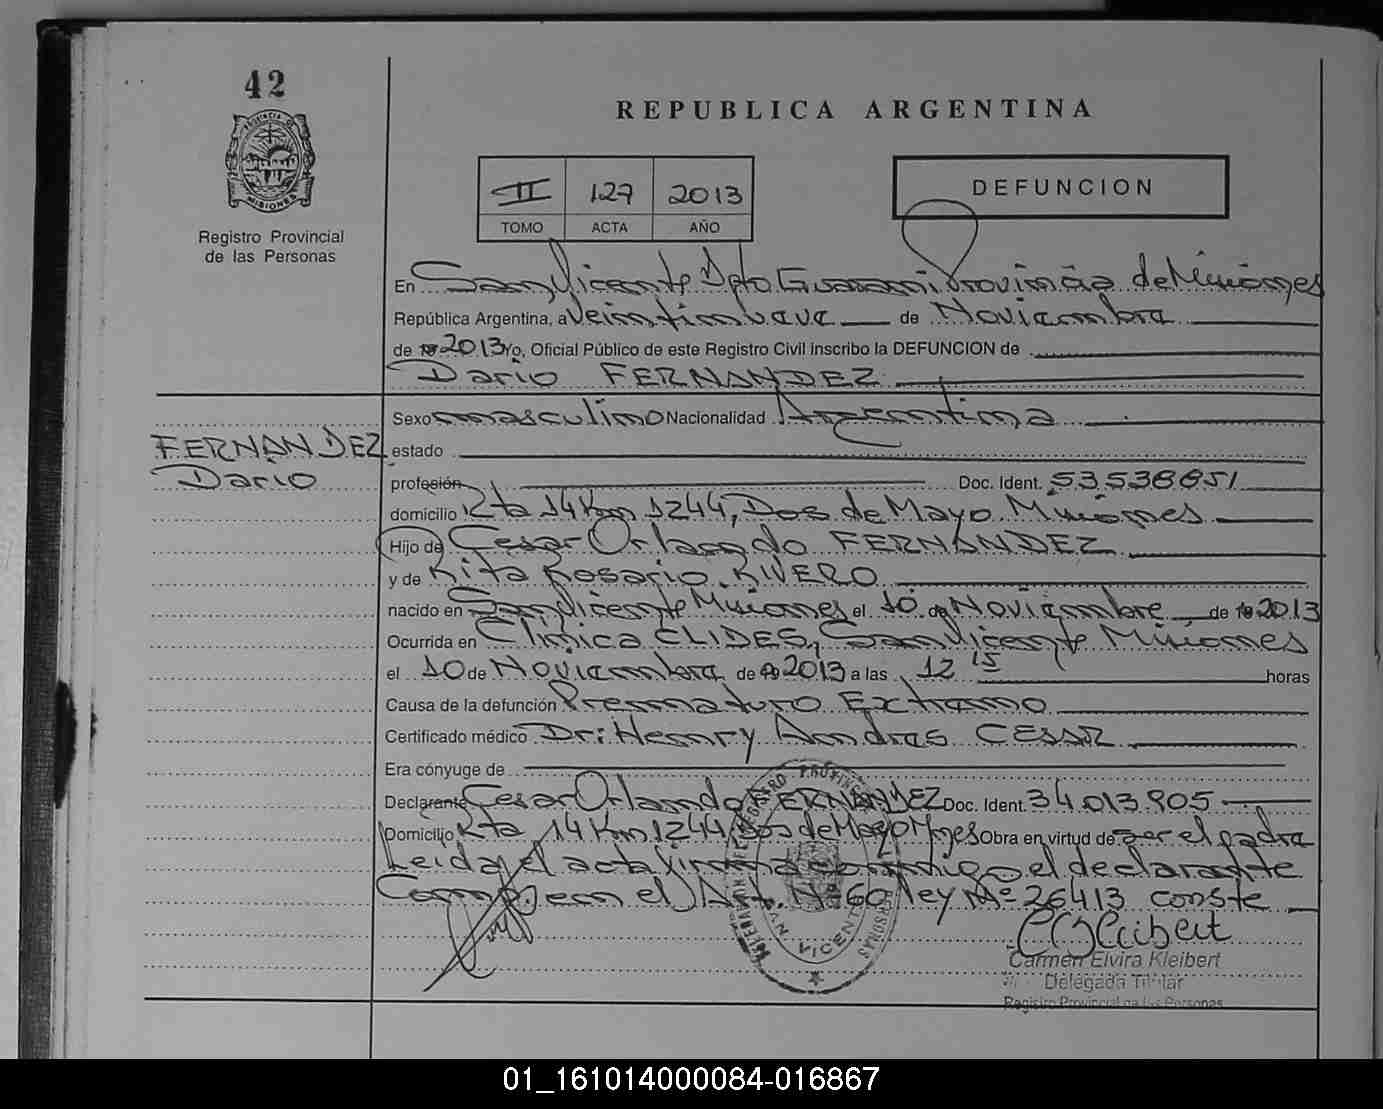 42
REPUBLICA ARGENTINA
PROVINCIA DE
MISIONES
Registro Provincial
de las Personas
II 127 2013
TOMO ACTA AÑO
DEFUNCION
En San Vicente Dpto Guarani Provincia de Misiones
República Argentina, a Veintinueve de Noviembre
de 2013 Yo, Oficial Público de este Registro Civil inscribo la DEFUNCION de
Dario FERNANDEZ
FERNANDEZ
Dario
Sexo masculino Nacionalidad Argentina
estado
profesión Doc. Ident. 53538851
domicilio Rta 14 Km 1244, Dos de Mayo Misiones
Hijo de Cesar Orlando FERNANDEZ
y de Rita Rosario RIVERO
nacido en San Vicente Misiones el 10 de Noviembre de 2013
Ocurrida en Clinica CLIDES, San Vicente Misiones
el 10 de Noviembre de 2013 a las 12 15 horas
Causa de la defunción Prematuro Extremo
Certificado médico Dr: Henry Andres CESAR
Era cónyuge de
Declarante Cesar Orlando FERNANDEZ Doc. Ident. 34.013.905
Domicilio Rta 14 Km 1244 Dos de Mayo Mnes Obra en virtud de ser el padre
Leida el acta firma conmigo el declarante
Comp. con el Art. Nº 60 ley Nº 26413 conste
SAN VICENTE
Carmen Elvira Kleibert
Delegada Titular
Registro Provincial de las Personas
01_161014000084-016867